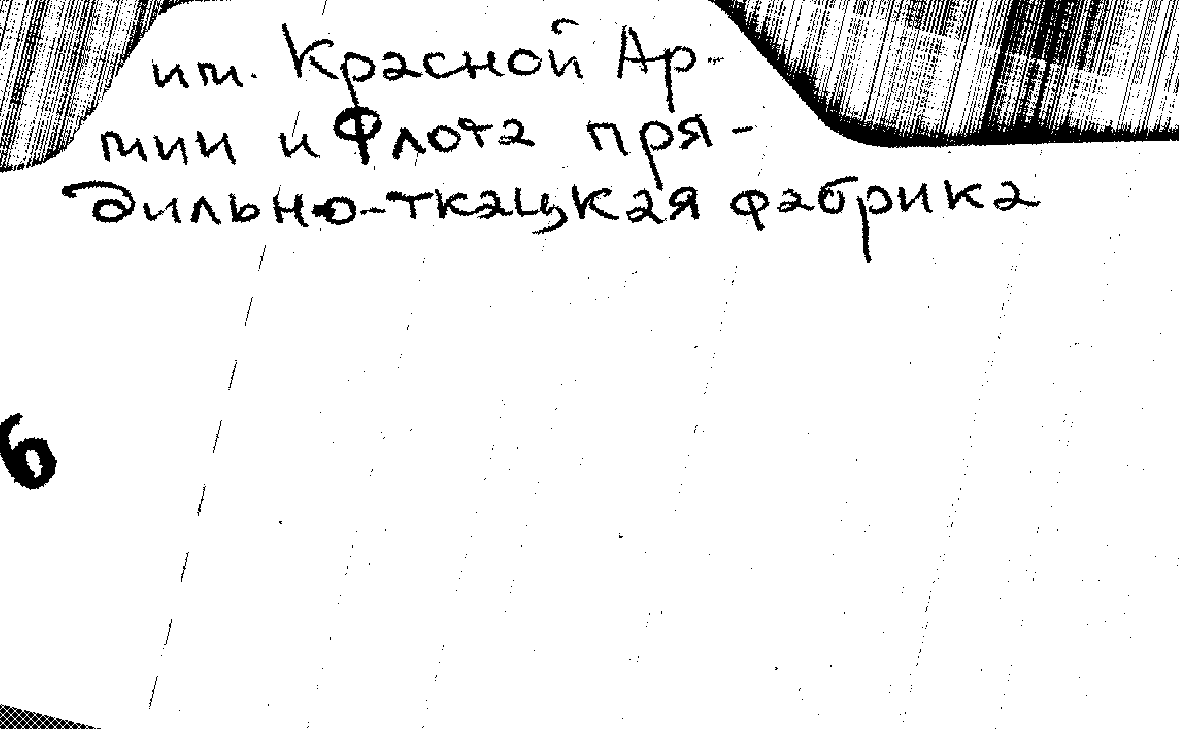 им. Красной Ар-
мии и Флота пря-
дильно-ткацкая фабрика
6